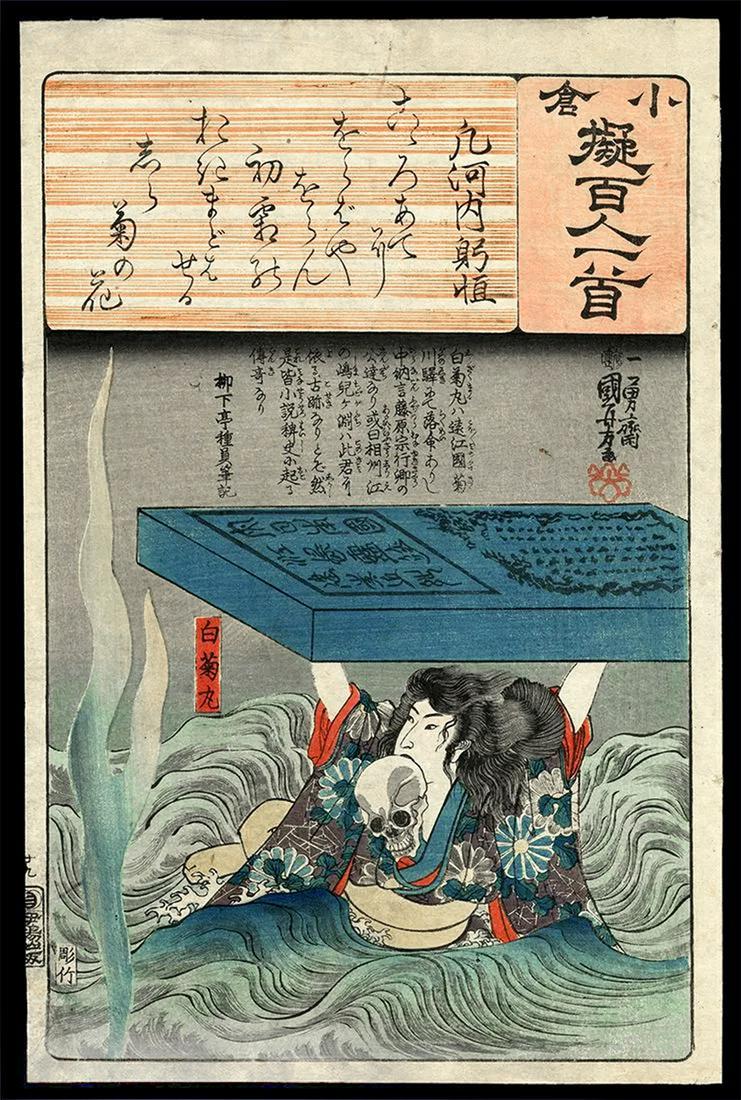 小倉
擬百人一首
凡河内躬恒
こゝろあてに
をらばや
をらん
初霜の
おきまどはせる
しら
菊の花
一勇齋
國芳画
白菊丸ハ遠江國菊
川驛にて落命ありし
中納言藤原宗行卿の
公達なり或曰相州江
の嶋兒ヶ淵ハ此君に
依る古跡なりとぞ然
是皆小説稗史に起る
傳奇なり
柳下亭種員筆記
白菊丸
廿九
彫竹